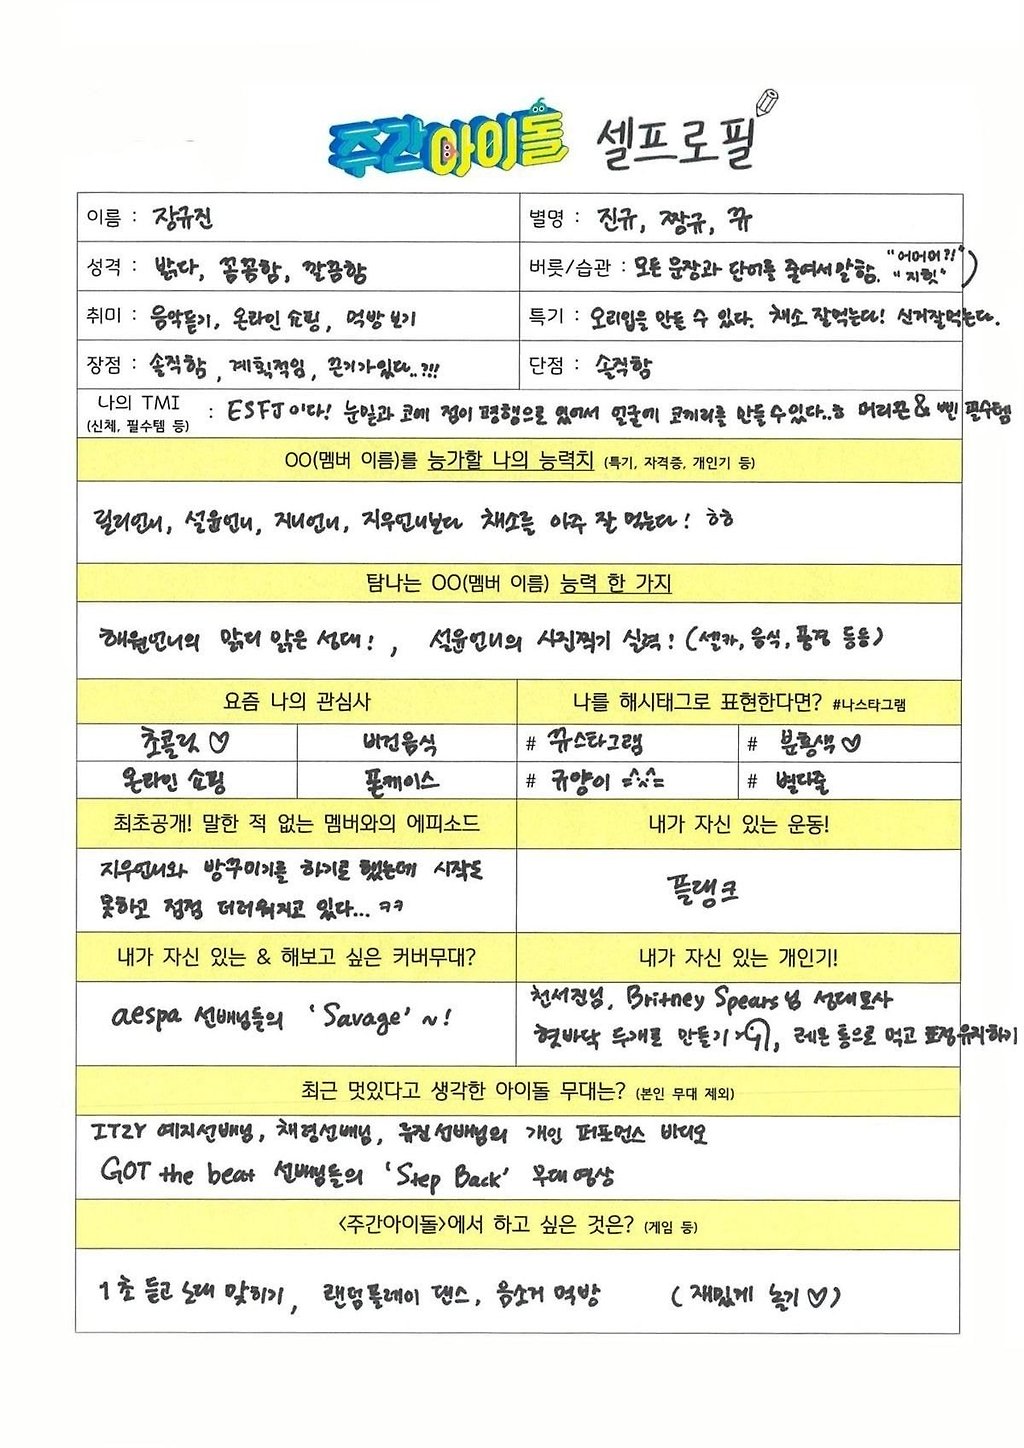 주간아이돌 셀프로필
이름 : 장규진
별명 : 진규, 짱규, 뀨
성격 : 밝다, 꼼꼼함, 깔끔함
버릇/습관 : 모든 문장과 단어를 줄여서 말함. "어머머?!" "지힛")
취미 : 음악듣기, 온라인 쇼핑, 먹방 보기
특기 : 오리입을 만들 수 있다. 채소 잘먹는다! 신거잘먹는다.
장점 : 솔직함, 계획적임, 끈기가있다..?!!
단점 : 솔직함
나의 TMI (신체, 필수템 등) : ESFJ이다! 눈밑과 코에 점이 평행으로 있어서 얼굴에 코끼리를 만들 수 있다..ㅎ 머리끈 & 삔 필수템
OO(멤버 이름)를 능가할 나의 능력치 (특기, 자격증, 개인기 등)
릴리언니, 설윤언니, 지니언니, 지우언니보다 채소를 아주 잘 먹는다! ㅎㅎ
탐나는 OO(멤버 이름) 능력 한 가지
해원언니의 맑디 맑은 성대!, 설윤언니의 사진찍기 실력! (셀카, 음식, 풍경 등등)
요즘 나의 관심사
나를 해시태그로 표현한다면? #나스타그램
초콜릿 ♡
비건음식
# 뀨스타그램
# 분홍색 ♡
온라인 쇼핑
폰케이스
# 규양이
# 별다줄
최초공개! 말한 적 없는 멤버와의 에피소드
내가 자신 있는 운동!
지우언니와 방꾸미기를 하기로 했는데 시작도
못하고 점점 더러워지고 있다... ㅋㅋ
플랭크
내가 자신 있는 & 해보고 싶은 커버무대?
내가 자신 있는 개인기!
aespa 선배님들의 'Savage' ~!
천서진님, Britney Spears님 성대모사
혓바닥 두개로 만들기, 레몬 통으로 먹고 표정유지하기
최근 멋있다고 생각한 아이돌 무대는? (본인 무대 제외)
ITZY 예지선배님, 채령선배님, 류진선배님의 개인 퍼포먼스 비디오
GOT the beat 선배님들의 'Step Back' 무대영상
<주간아이돌>에서 하고 싶은 것은? (게임 등)
1초 듣고 노래 맞히기, 랜덤플레이 댄스, 음소거 먹방 (재밌게 놀기♡)